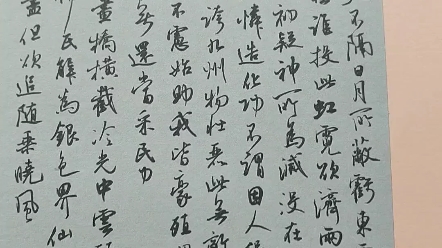 不隔日月所蔽虧東
誰投此虹霓欲濟兩
初疑神所為滅沒在
憐造化功不謂因人
誇九州物壯麗此無敵
不憲始助我皆豪殖
還當采民力
畫橋橫截冷光中雲
民解為銀色界仙
盡但欲追隨乘曉風